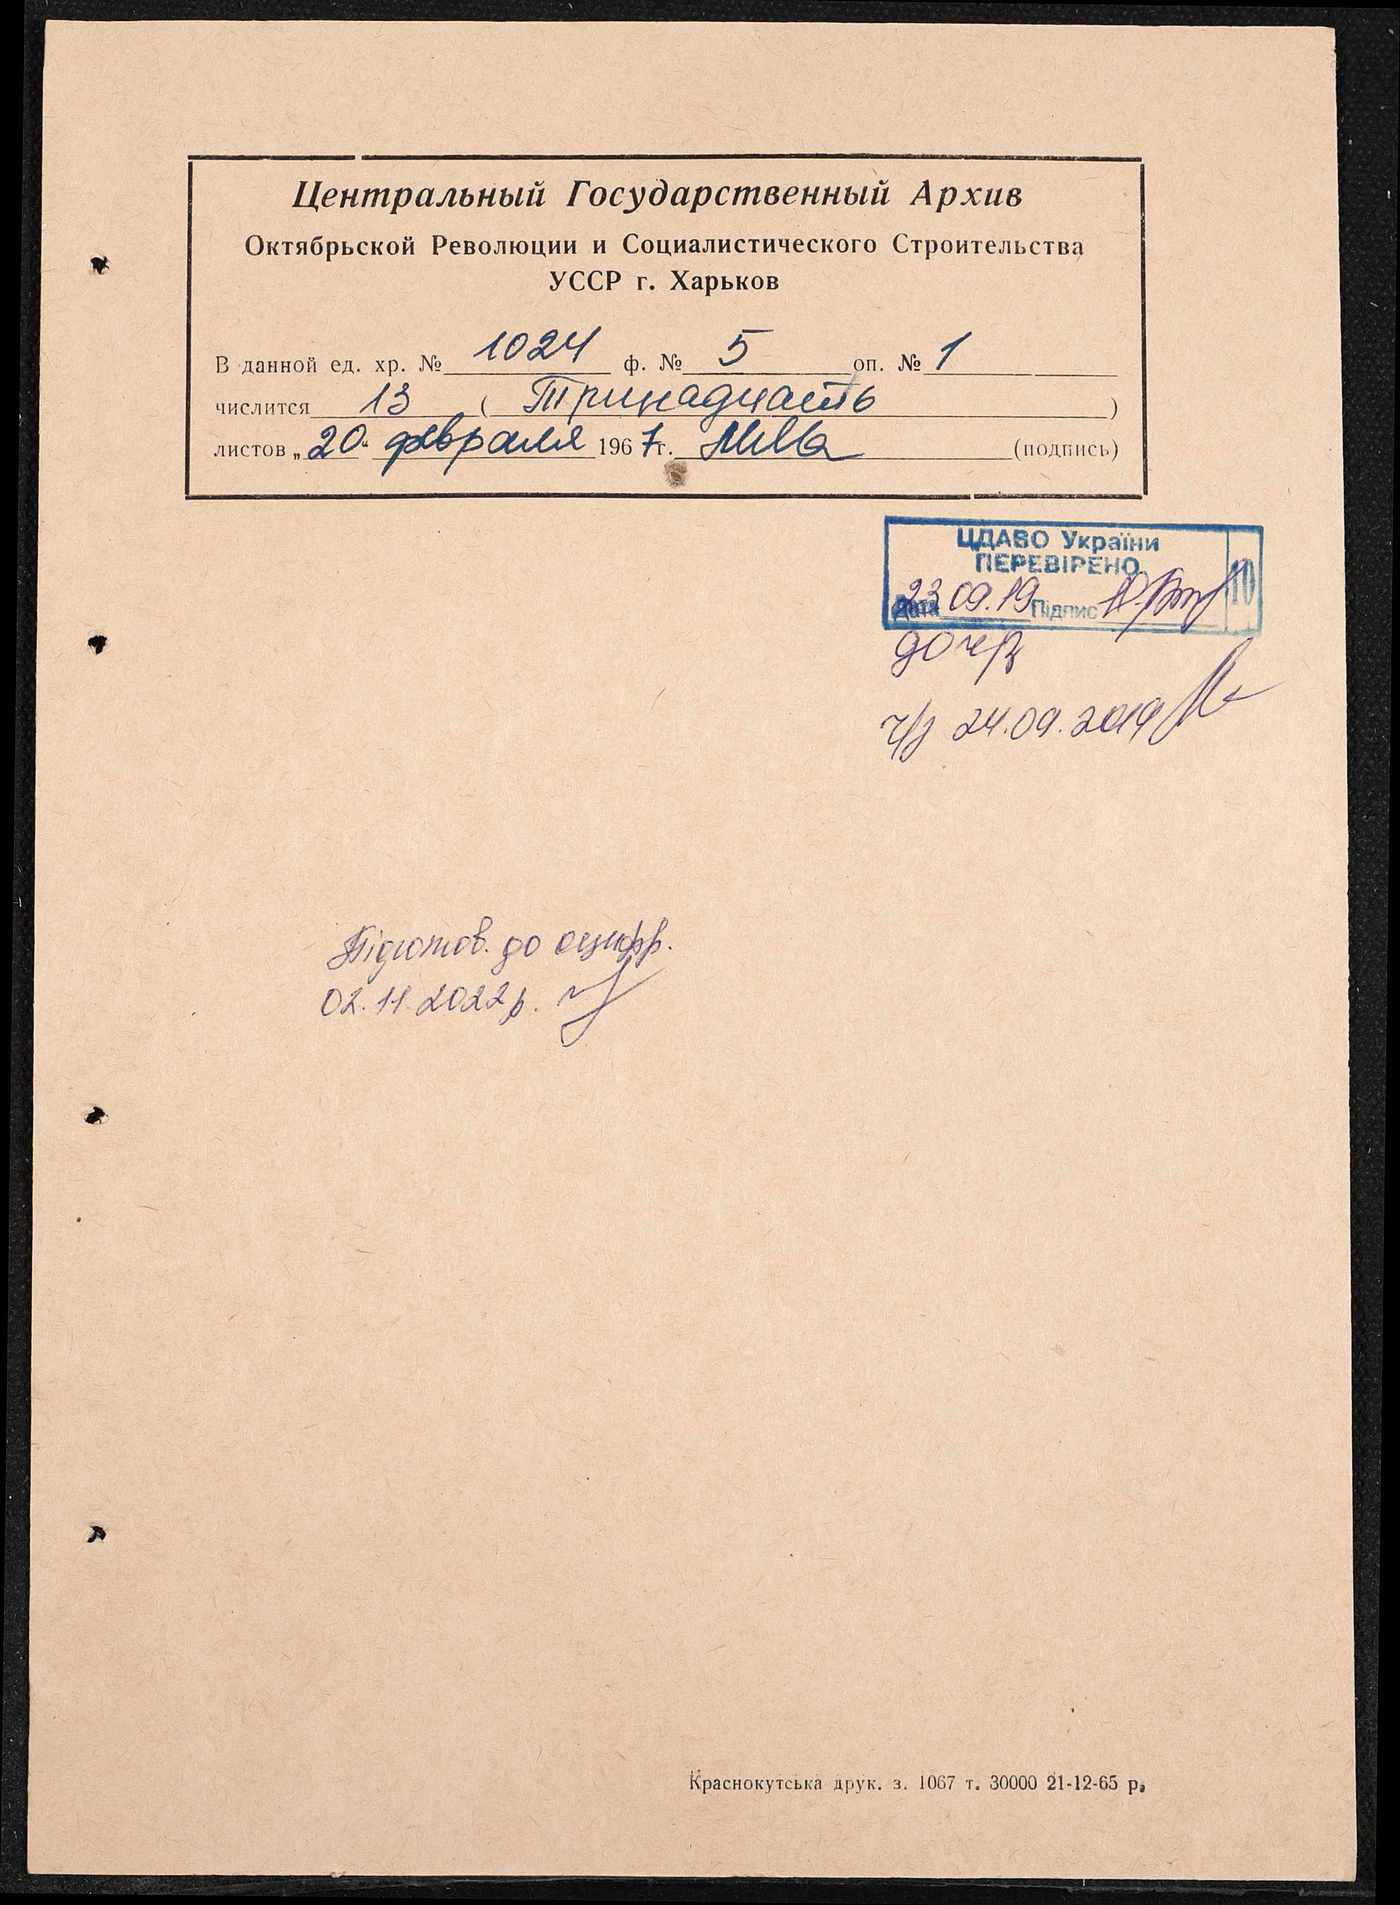 Центральный Государственный Архив
Октябрьской Революции и Социалистического Строительства
УССР г. Харьков
В данной ед. хр. № 1024 ф. № 5 оп. № 1
числится 13 ( Тринадцать )
листов „ 20 " февраля 1967 г. (подпись)
ЦДАВО України
ПЕРЕВІРЕНО
Дата 23.09.19 Підпис 10
до ч/з
ч/з 24.09.2019
Підготов. до оцифр.
02.11.2022 р.
Краснокутська друк. з. 1067 т. 30000 21-12-65 р.